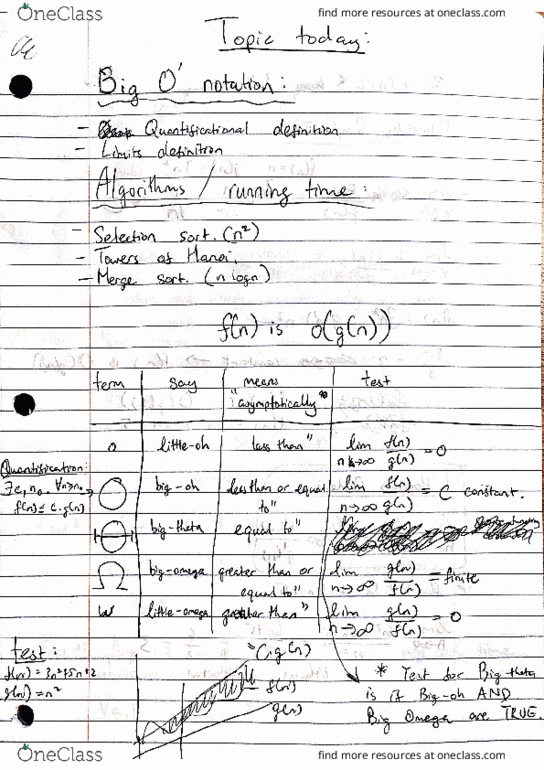 OneClass
find more resources at oneclass.com
Topic today:
Big O' notation:
- Quantificational definition
- Limits definition
Algorithms / running time:
- Selection sort. (n²)
- Towers of Hanoi.
- Merge sort. (n logn)
f(n) is o(g(n))
term say means "asymptotically" test
o little-oh less than" lim n→∞ f(n)/g(n) = 0
Quantification:
∃c, n₀ ∀n>n₀
f(n) ≤ c·g(n)
O big-oh less than or equal to" lim n→∞ f(n)/g(n) = C constant.
Θ big-theta equal to"
Ω big-omega greater than or equal to" lim n→∞ g(n)/f(n) = finite
ω little-omega greater than" lim n→∞ g(n)/f(n) = 0
test:
f(n) = 3n²+5n+2
g(n) = n²
"C·g(n)
f(n)
g(n)
* Test for Big-theta
is if Big-oh AND
Big Omega are TRUE.
OneClass
find more resources at oneclass.com